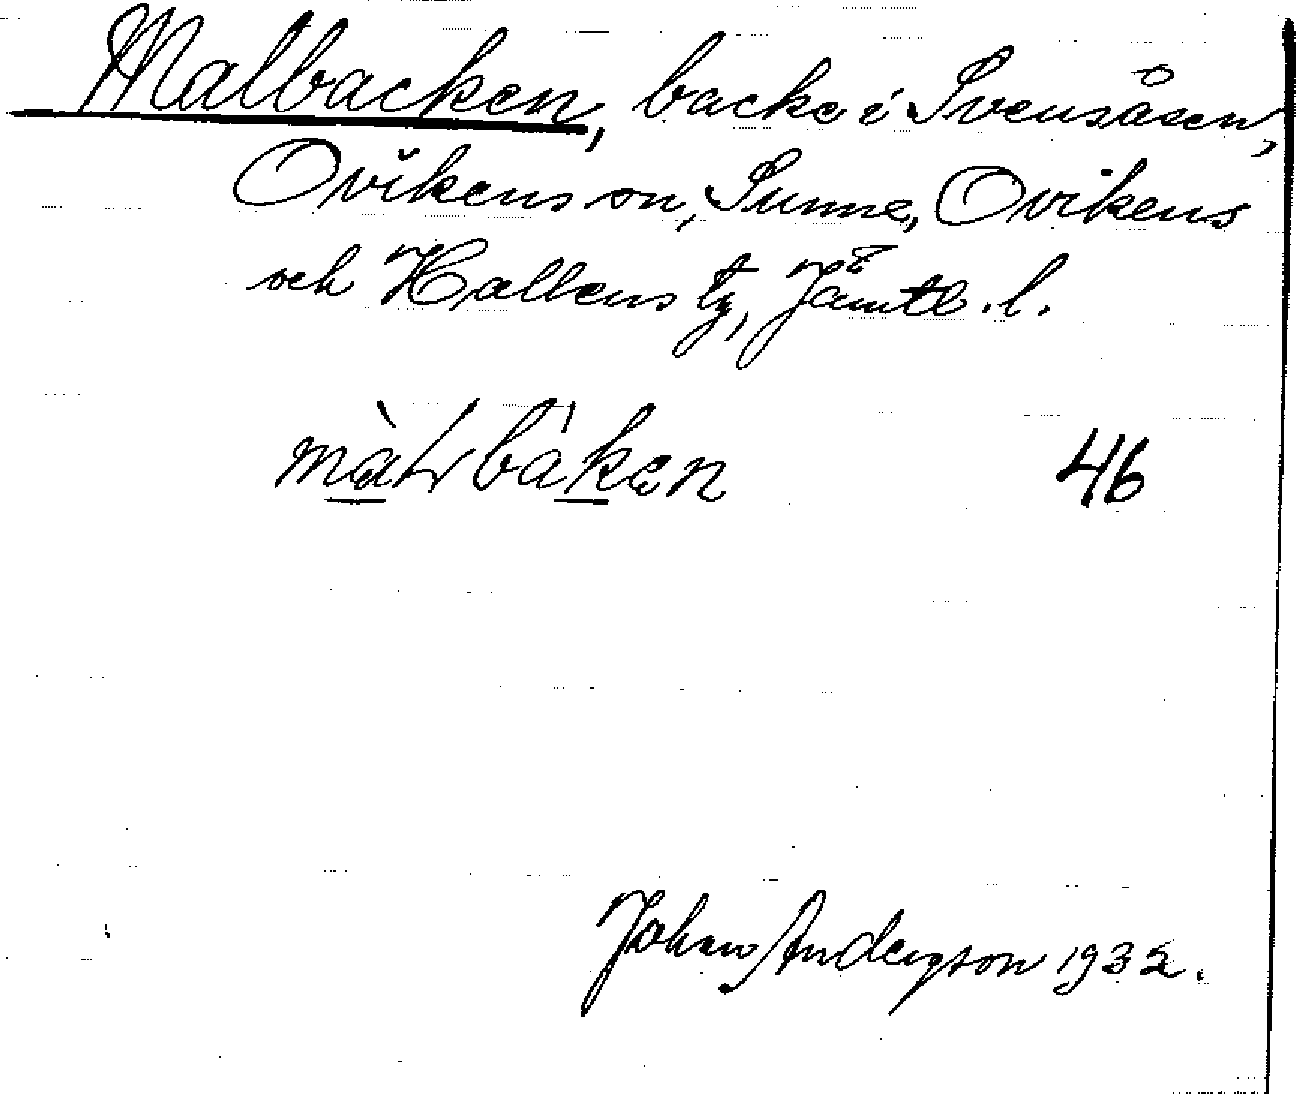 Malbacken, backe i Svensåsen,
Ovikens sn, Sunne, Ovikens
och Hallens tg, Jämtl. l.
màLbáken 46
Johan Anderson 1932.